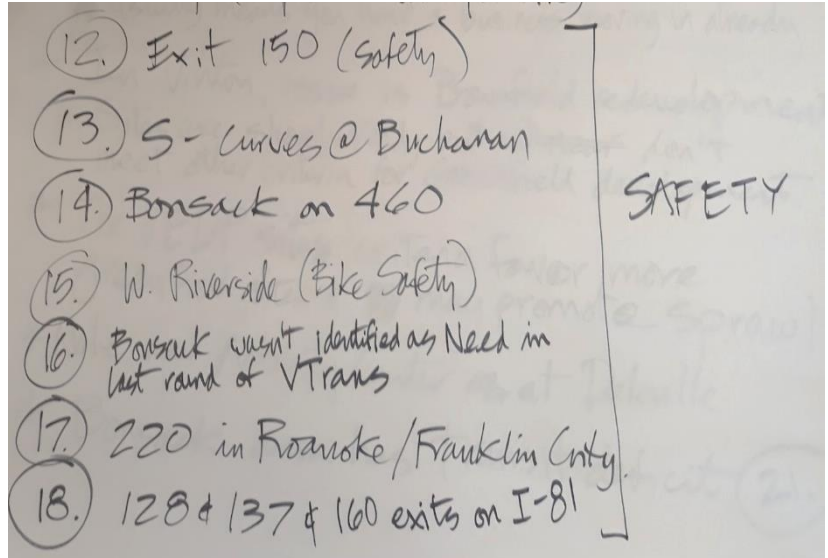 12. Exit 150 (Safety)
13. S-curves @ Buchanan
14. Bonsack on 460
SAFETY
15. W. Riverside (Bike Safety)
16. Bonsack wasn't identified as Need in
last round of VTrans
17. 220 in Roanoke/Franklin Cnty.
18. 128 & 137 & 160 exits on I-81
21.